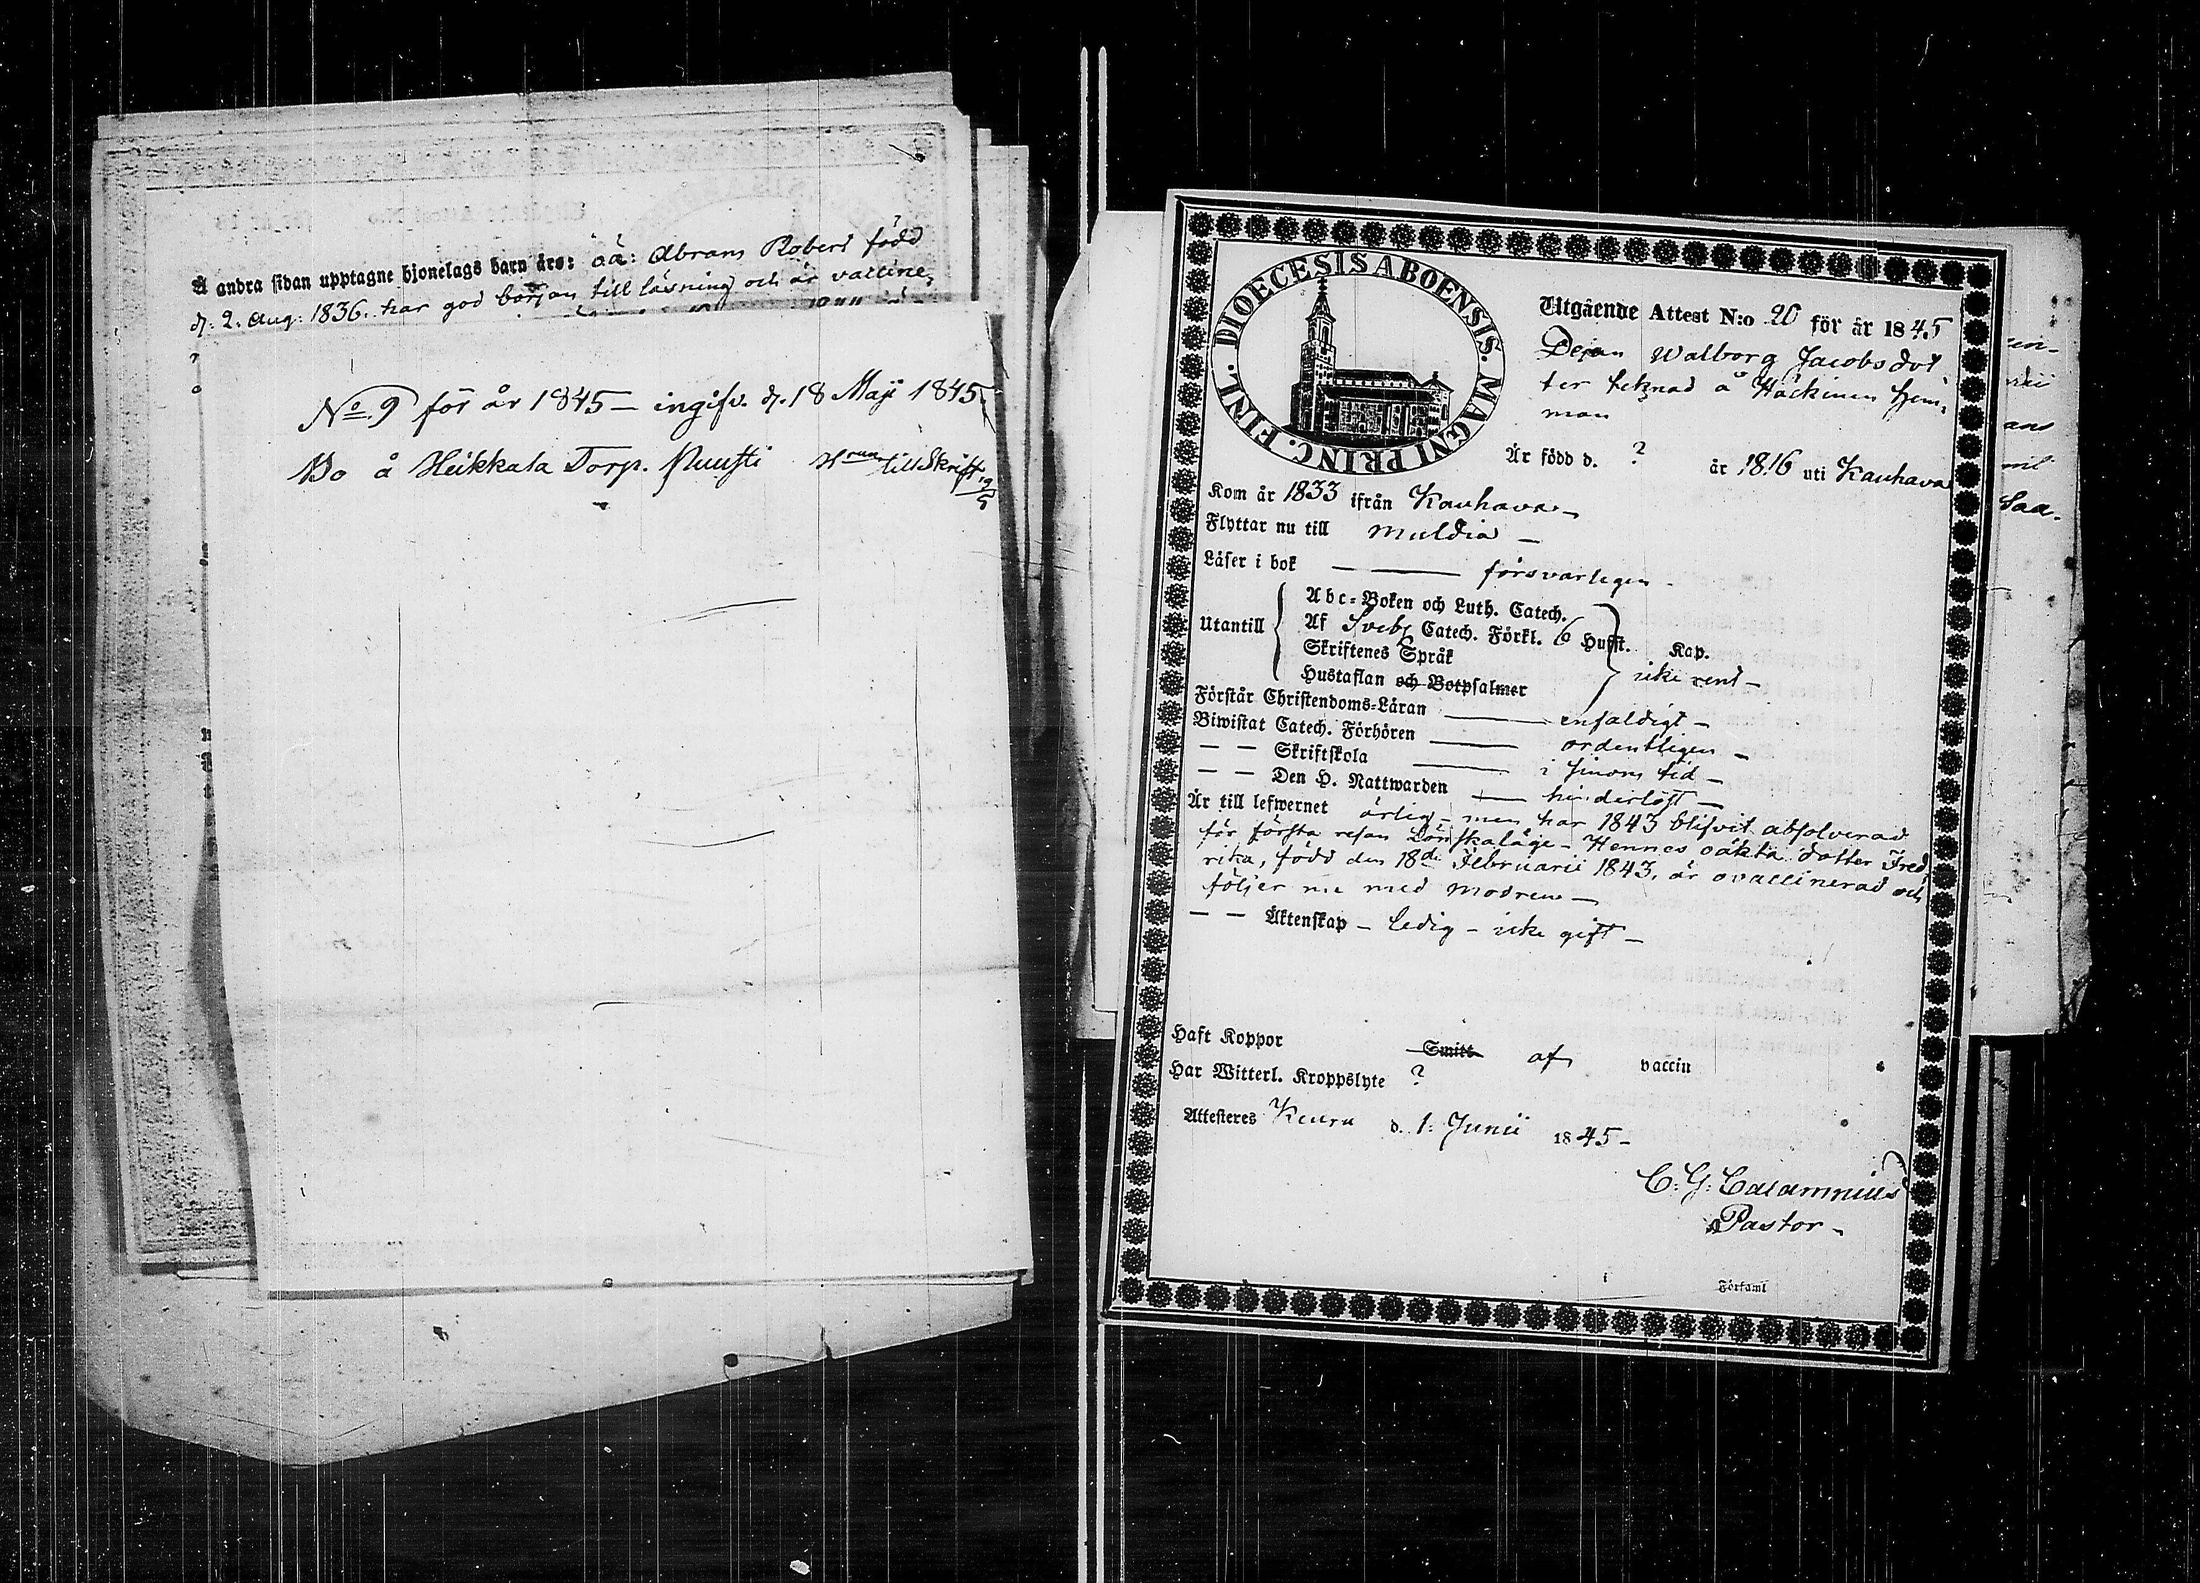 Å andra sidan upptagne hjonelags barn äro: oä: Abram Robert född
d: 2. Aug: 1836. har god början till läsning och är vaccine,
No 9 för år 1845 — ingifv. d. 18 Maji 1845.
Bo å Heikkala Torp. Puusti till Skrift
DIOECESIS ABOENSIS. MAGNI PRINC. FINL.
Utgående Attest N:o 20 för år 1845
Pejan Walborg Jacobsdot
ter teknad å Häckinen hem,
man
Är född d. ? år 1816 uti Kauhava
Kom år 1833 ifrån Kauhava —
Flyttar nu till Muldia —
Läser i bok — försvarligen —
Utantill
Abc-Boken och Luth. Catech.
Af Sveb. Catech. Förkl. 6 Hufst. Kap.
Skriftenes Språk
Hustaflan och Botpsalmer
icke rent —
Förstår Christendoms-Läran — enfaldigt —
Biwistat Catech. Förhören — ordentligen —
— — Skriftskola — i sinom tid —
— — Den H. Nattwarden — hinderlöst —
Är till lefwernet ärlig — men har 1843 blifvit absolverad
för första resan Lönskaläge — Hennes oäkta dotter Fred,
rika, född den 18de Februarii 1843, är ovaccinerad och
följer nu med modren —
— — Äktenskap — ledig — icke gift —
Haft Koppor Smitt af vaccin
Har Witterl. Kroppslyte ?
Attesteres Keuru d. 1: Junii 1845 —
C: G: Calamnius
Pastor —
Församl